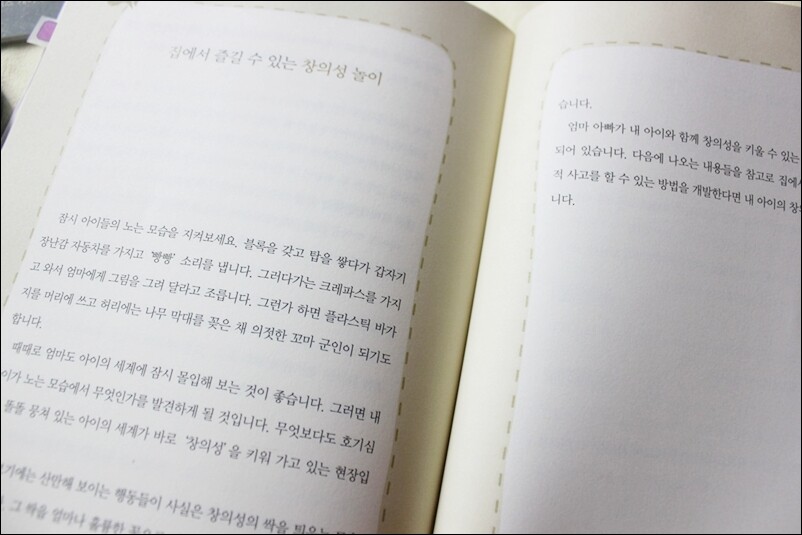 집에서 즐길 수 있는 창의성 놀이
잠시 아이들의 노는 모습을 지켜보세요. 블록을 갖고 탑을 쌓다가 갑자기
장난감 자동차를 가지고 '빵빵' 소리를 냅니다. 그러다가는 크레파스를 가지
고 와서 엄마에게 그림을 그려 달라고 조릅니다. 그런가 하면 플라스틱 바가
지를 머리에 쓰고 허리에는 나무 막대를 꽂은 채 의젓한 꼬마 군인이 되기도
합니다.
때때로 엄마도 아이의 세계에 잠시 몰입해 보는 것이 좋습니다. 그러면 내
이가 노는 모습에서 무엇인가를 발견하게 될 것입니다. 무엇보다도 호기심
똘똘 뭉쳐 있는 아이의 세계가 바로 '창의성'을 키워 가고 있는 현장입
산만해 보이는 행동들이 사실은 창의성의 싹을
그 싹을 얼마나 훌륭한
습니다.
엄마 아빠가 내 아이와 함께 창의성을 키울 수 있는
되어 있습니다. 다음에 나오는 내용들을 참고로 집에서
적 사고를 할 수 있는 방법을 개발한다면 내 아이의
니다.